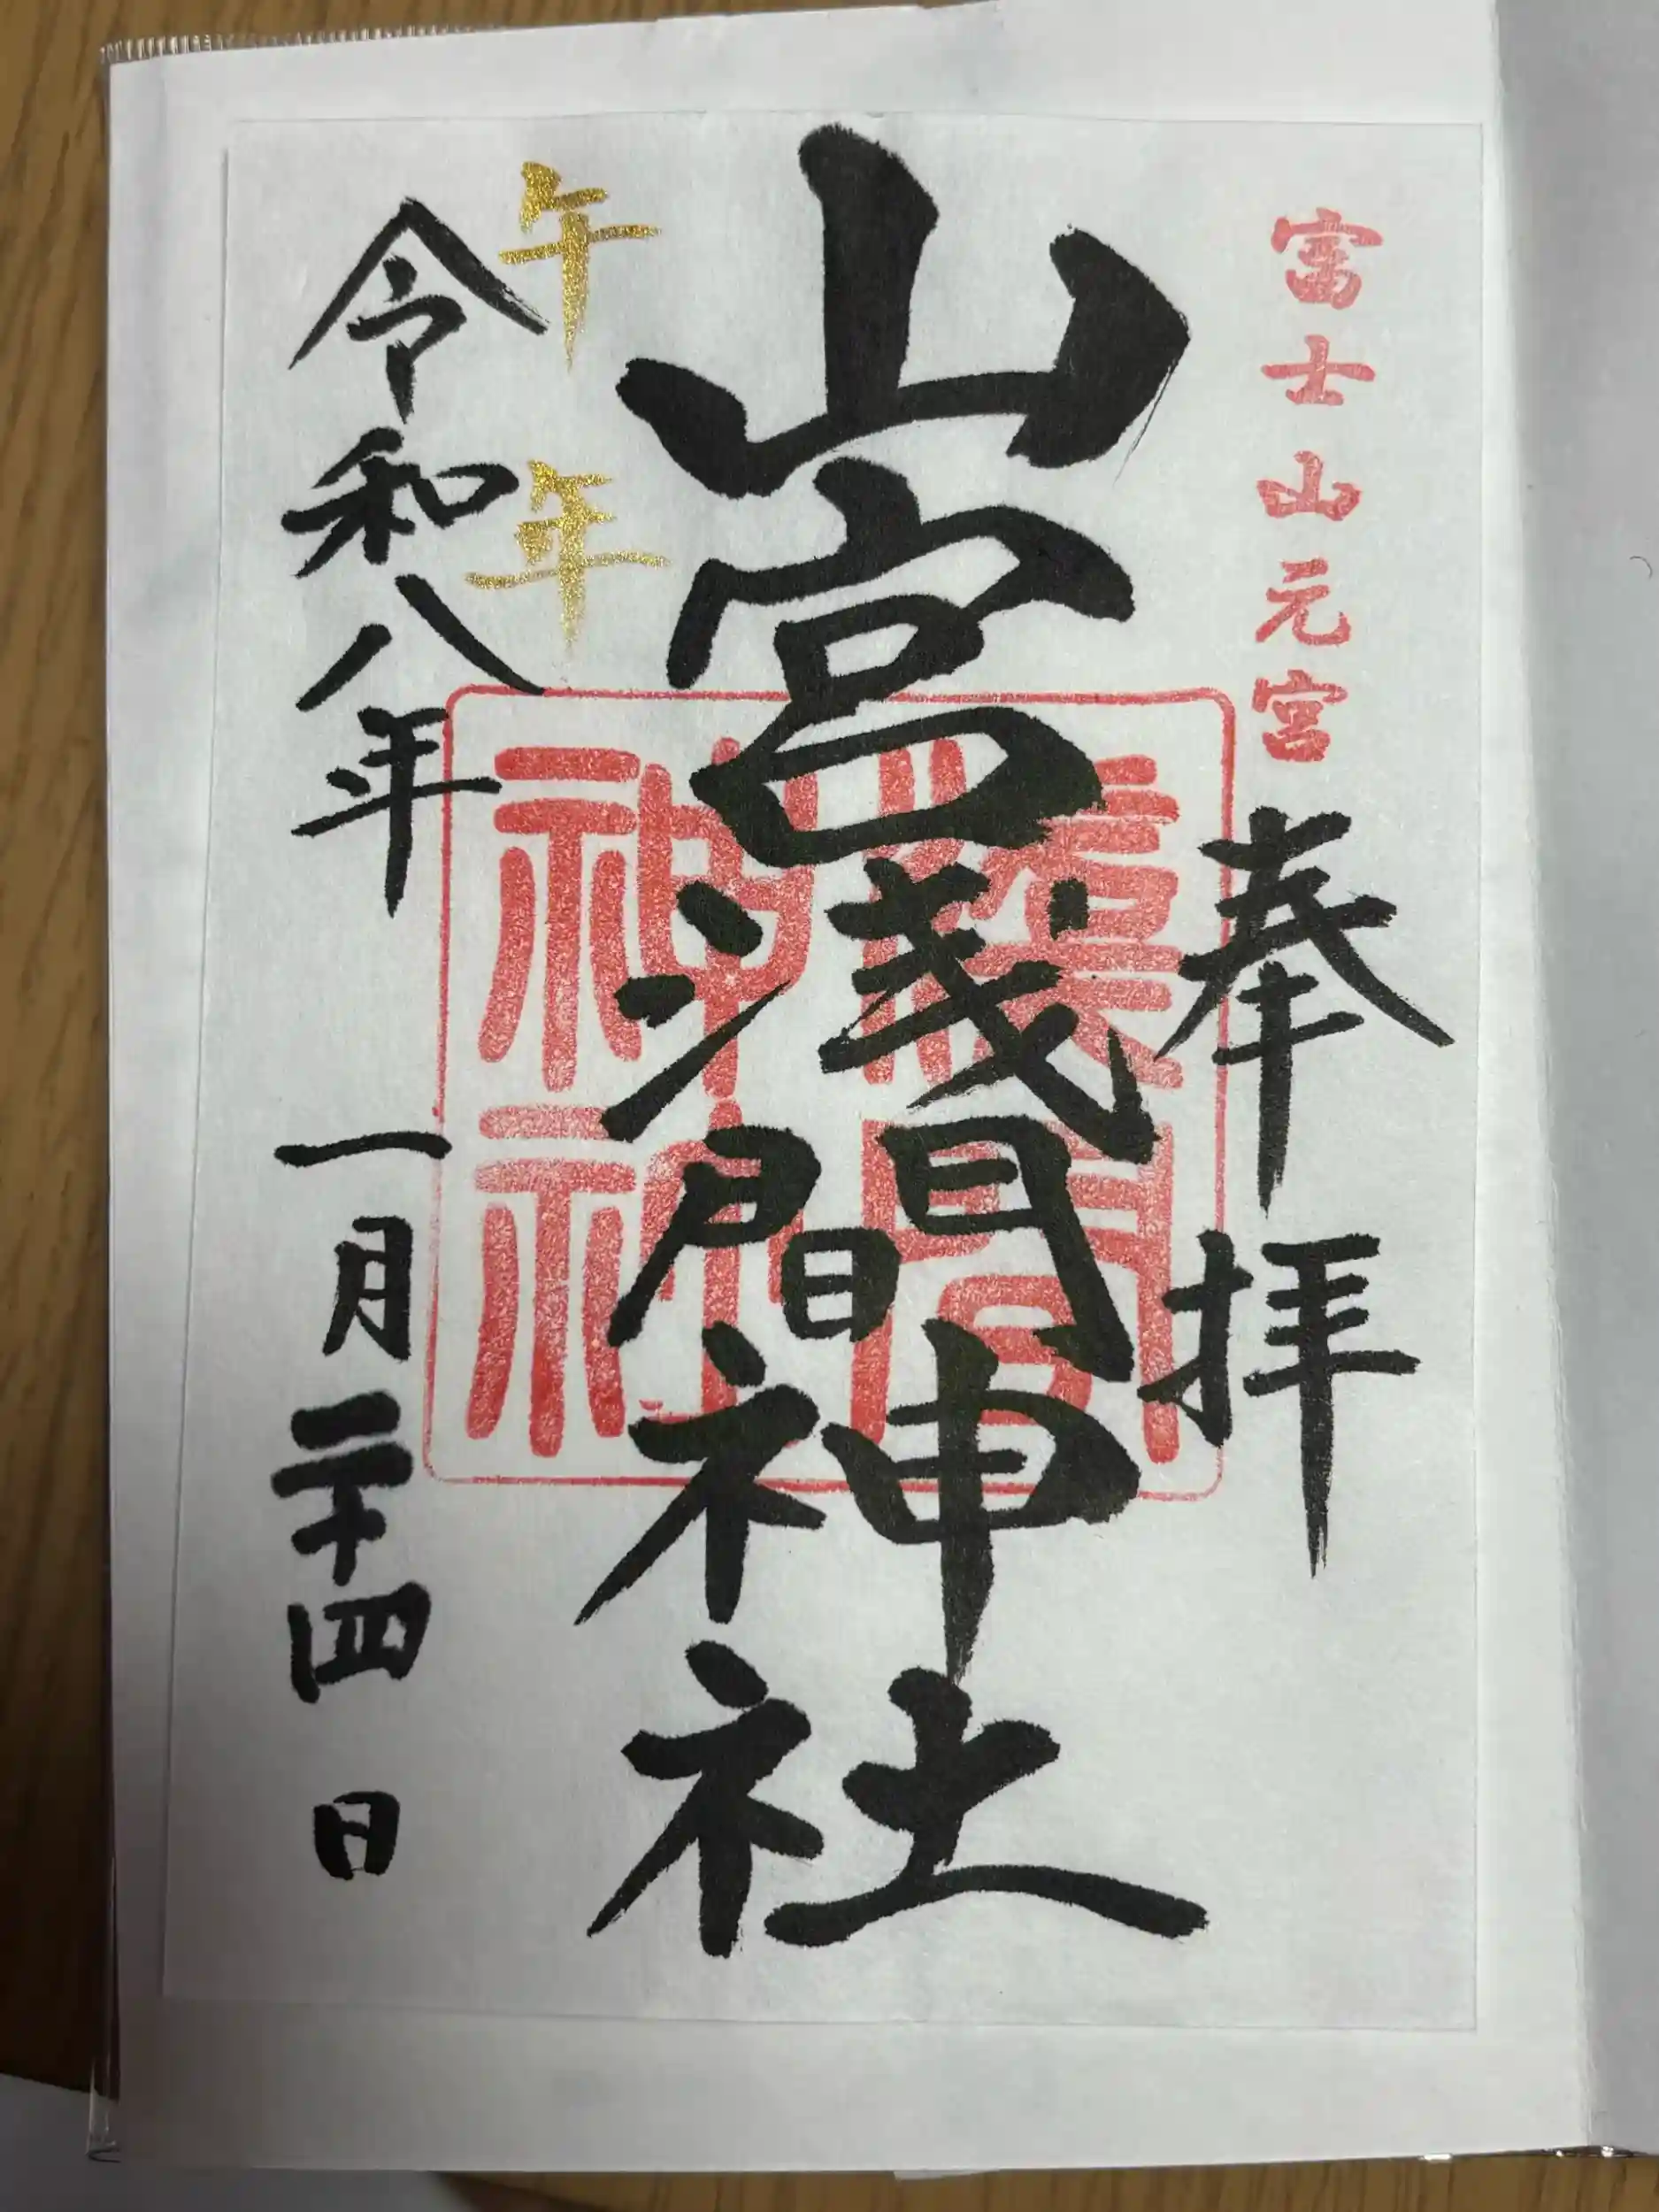 富士山元宮
奉拝
山宮浅間神社
午年
令和八年 一月二十四日